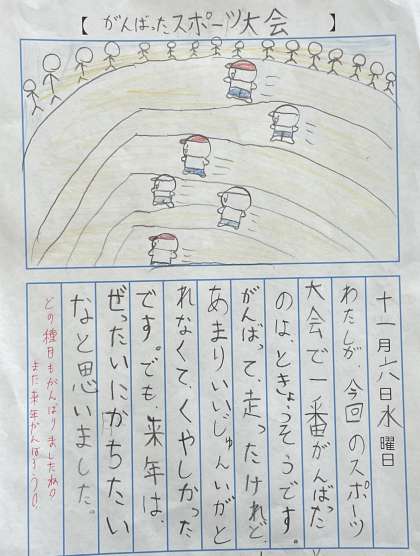 【がんばったスポーツ大会】
十一月六日水曜日
わたしが、今回のスポーツ
大会で一番がんばった
のは、ときょうそうです。
がんばって、走ったけれど、
あまりいいじゅんいがと
れなくて、くやしかった
です。でも、来年は、
ぜったいにかちたい
なと思いました。
どの種目もがんばりましたね。
また来年がんばろうね。